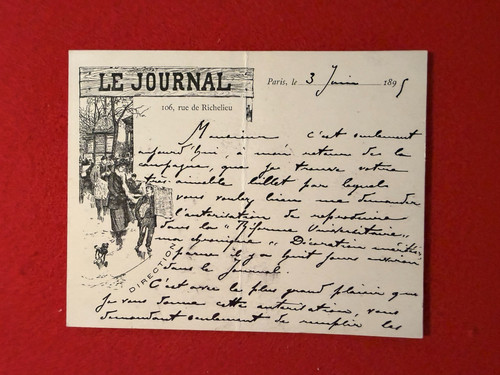 LE JOURNAL
106, rue de Richelieu
Paris, le 3 Juin 1895
DIRECTION
Monsieur c'est seulement
aujourd'hui, à mon retour de la
campagne, que je trouve votre
très aimable billet par lequel
vous voulez bien me demander
l'autorisation de reproduire
dans la "Réforme Universitaire"
ma chronique "Discrétion
parue il y a huit jours environ
dans le Journal.
C'est avec le plus grand plaisir que
je vous donne cette autorisation, vous
demandant seulement de remplir les